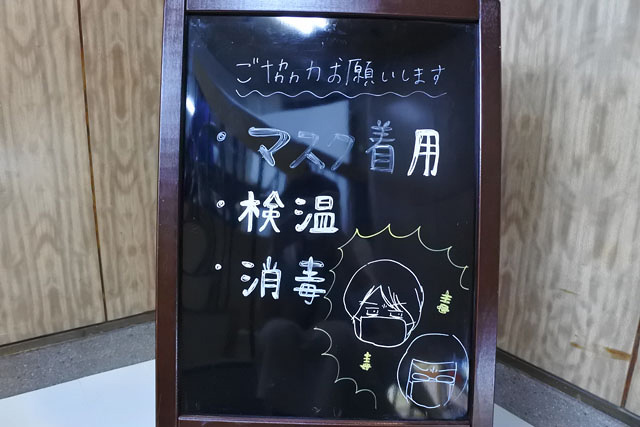 ご協力お願いします
・マスク着用
・検温
・消毒
毒
毒